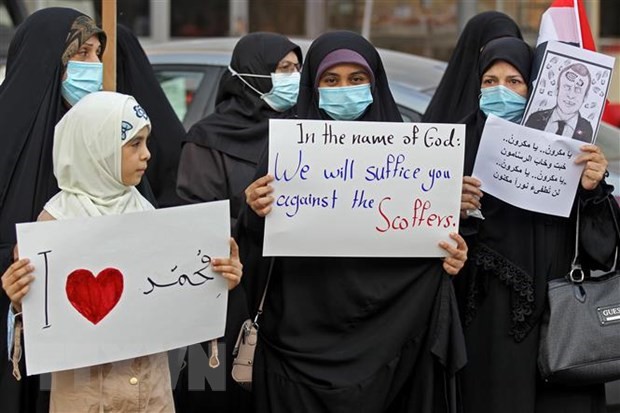 I مُحمَّد
In the name of God:
We will suffice you
against the Scoffers.
يا مكرون.. يا مكرون..
خبت وخاب الرسامون
يا مكرون.. يا مكرون..
لن تطفىء نوراً مكنون
GUESS